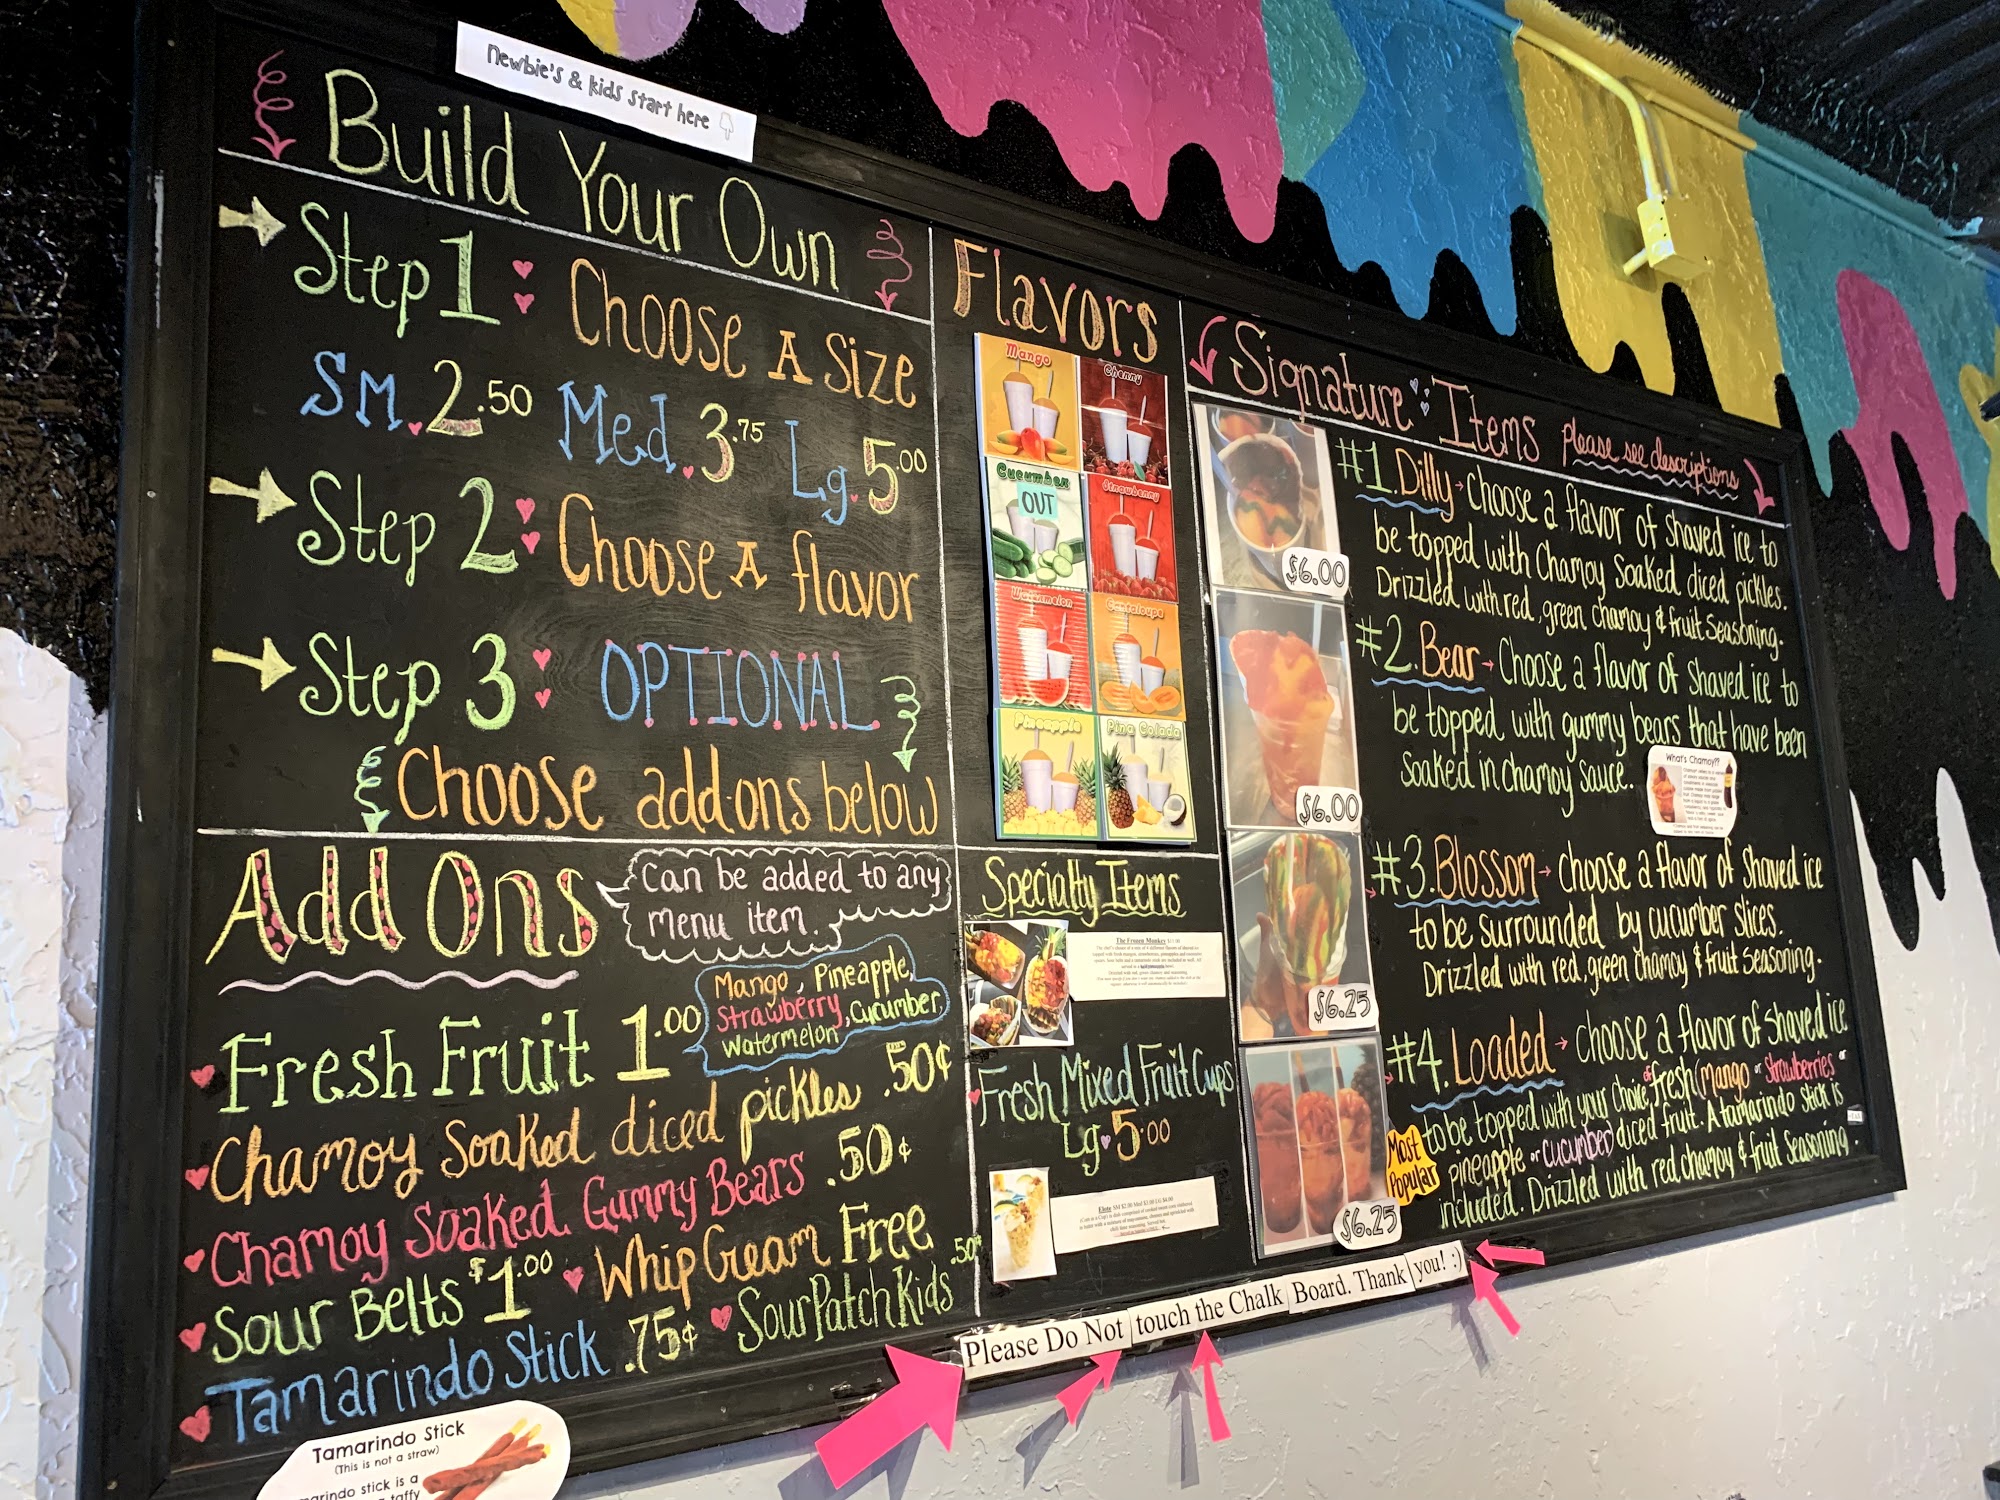 Newbie's & kids start here
Build Your Own
Step 1: Choose A Size
SM. 2.50 Med. 3.75 Lg. 5.00
Step 2: Choose A flavor
Step 3: OPTIONAL
Choose add-ons below
Add Ons
Can be added to any
menu item.
Fresh Fruit 1.00
Mango, Pineapple,
Strawberry, Cucumber,
Watermelon
Chamoy Soaked diced pickles .50¢
Chamoy Soaked Gummy Bears .50¢
Sour Belts $1.00
Whip Cream Free
Tamarindo Stick .75¢
Sour Patch Kids .50¢
Tamarindo Stick
(This is not a straw)
stick is a
taffy
Flavors
Mango
Cherry
Cucumber
OUT
Strawberry
Watermelon
Cantaloupe
Pineapple
Pina Colada
Specialty Items
The Frozen Monkey
Fresh Mixed Fruit Cups
Lg. 5.00
Elote SM $2.00 Med $3.00 LG $4.00
Signature Items please see descriptions
#1. Dilly Choose a flavor of Shaved ice to
be topped with Chamoy Soaked diced pickles.
Drizzled with red, green chamoy & fruit Seasoning.
$6.00
#2. Bear Choose a flavor of Shaved ice to
be topped with gummy bears that have been
Soaked in Chamoy Sauce.
$6.00
What's Chamoy??
#3. Blossom choose a flavor of Shaved ice
to be surrounded by cucumber slices.
Drizzled with red, green chamoy & fruit Seasoning.
$6.25
#4. Loaded choose a flavor of Shaved ice
to be topped with your choice of fresh (mango or strawberries or
pineapple or cucumber) diced fruit. A tamarindo stick is
included. Drizzled with red chamoy & fruit Seasoning.
Most
Popular
$6.25
Please Do Not touch the Chalk Board. Thank you! :)